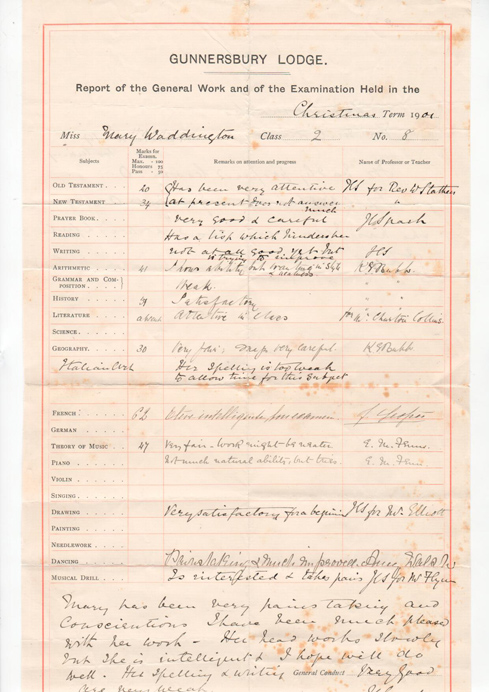 GUNNERSBURY LODGE.
Report of the General Work and of the Examination Held in the
Christmas Term 1901
Miss Mary Waddington Class 2 No. 8
Subjects Marks for Exams. Max. - 100 Honours 75 Pass - 50 Remarks on attention and progress Name of Professor or Teacher
OLD TESTAMENT 20 Has been very attentive for Rev W
NEW TESTAMENT 34 at present does not answer much "
PRAYER BOOK Very Good & careful
READING Has a lisp which hinders her
WRITING not at all good yet but is trying to improve
ARITHMETIC 41 Shows ability but
GRAMMAR AND COMPOSITION Weak "
HISTORY Satisfactory "
LITERATURE Attentive in Class Churton Collins
SCIENCE
GEOGRAPHY 30 Very fair. maps very careful
Her Spelling is too weak
to allow time for this subject
FRENCH 62
GERMAN
THEORY OF MUSIC 47 Very fair. Work might be neater E. M.
PIANO Not much natural ability, but tries. E. M.
VIOLIN
SINGING
DRAWING Very satisfactory for a beginner for Mr Elliott
PAINTING
NEEDLEWORK
DANCING Painstaking & much improved.
MUSICAL DRILL Is interested & takes pains for Mr Flynn
Mary has been very pains taking and
Conscientious I have been much please
with her work - Her head works slowly
but she is intelligent & I hope will do
well. Her Spelling & writing General Conduct Very Good
are very weak